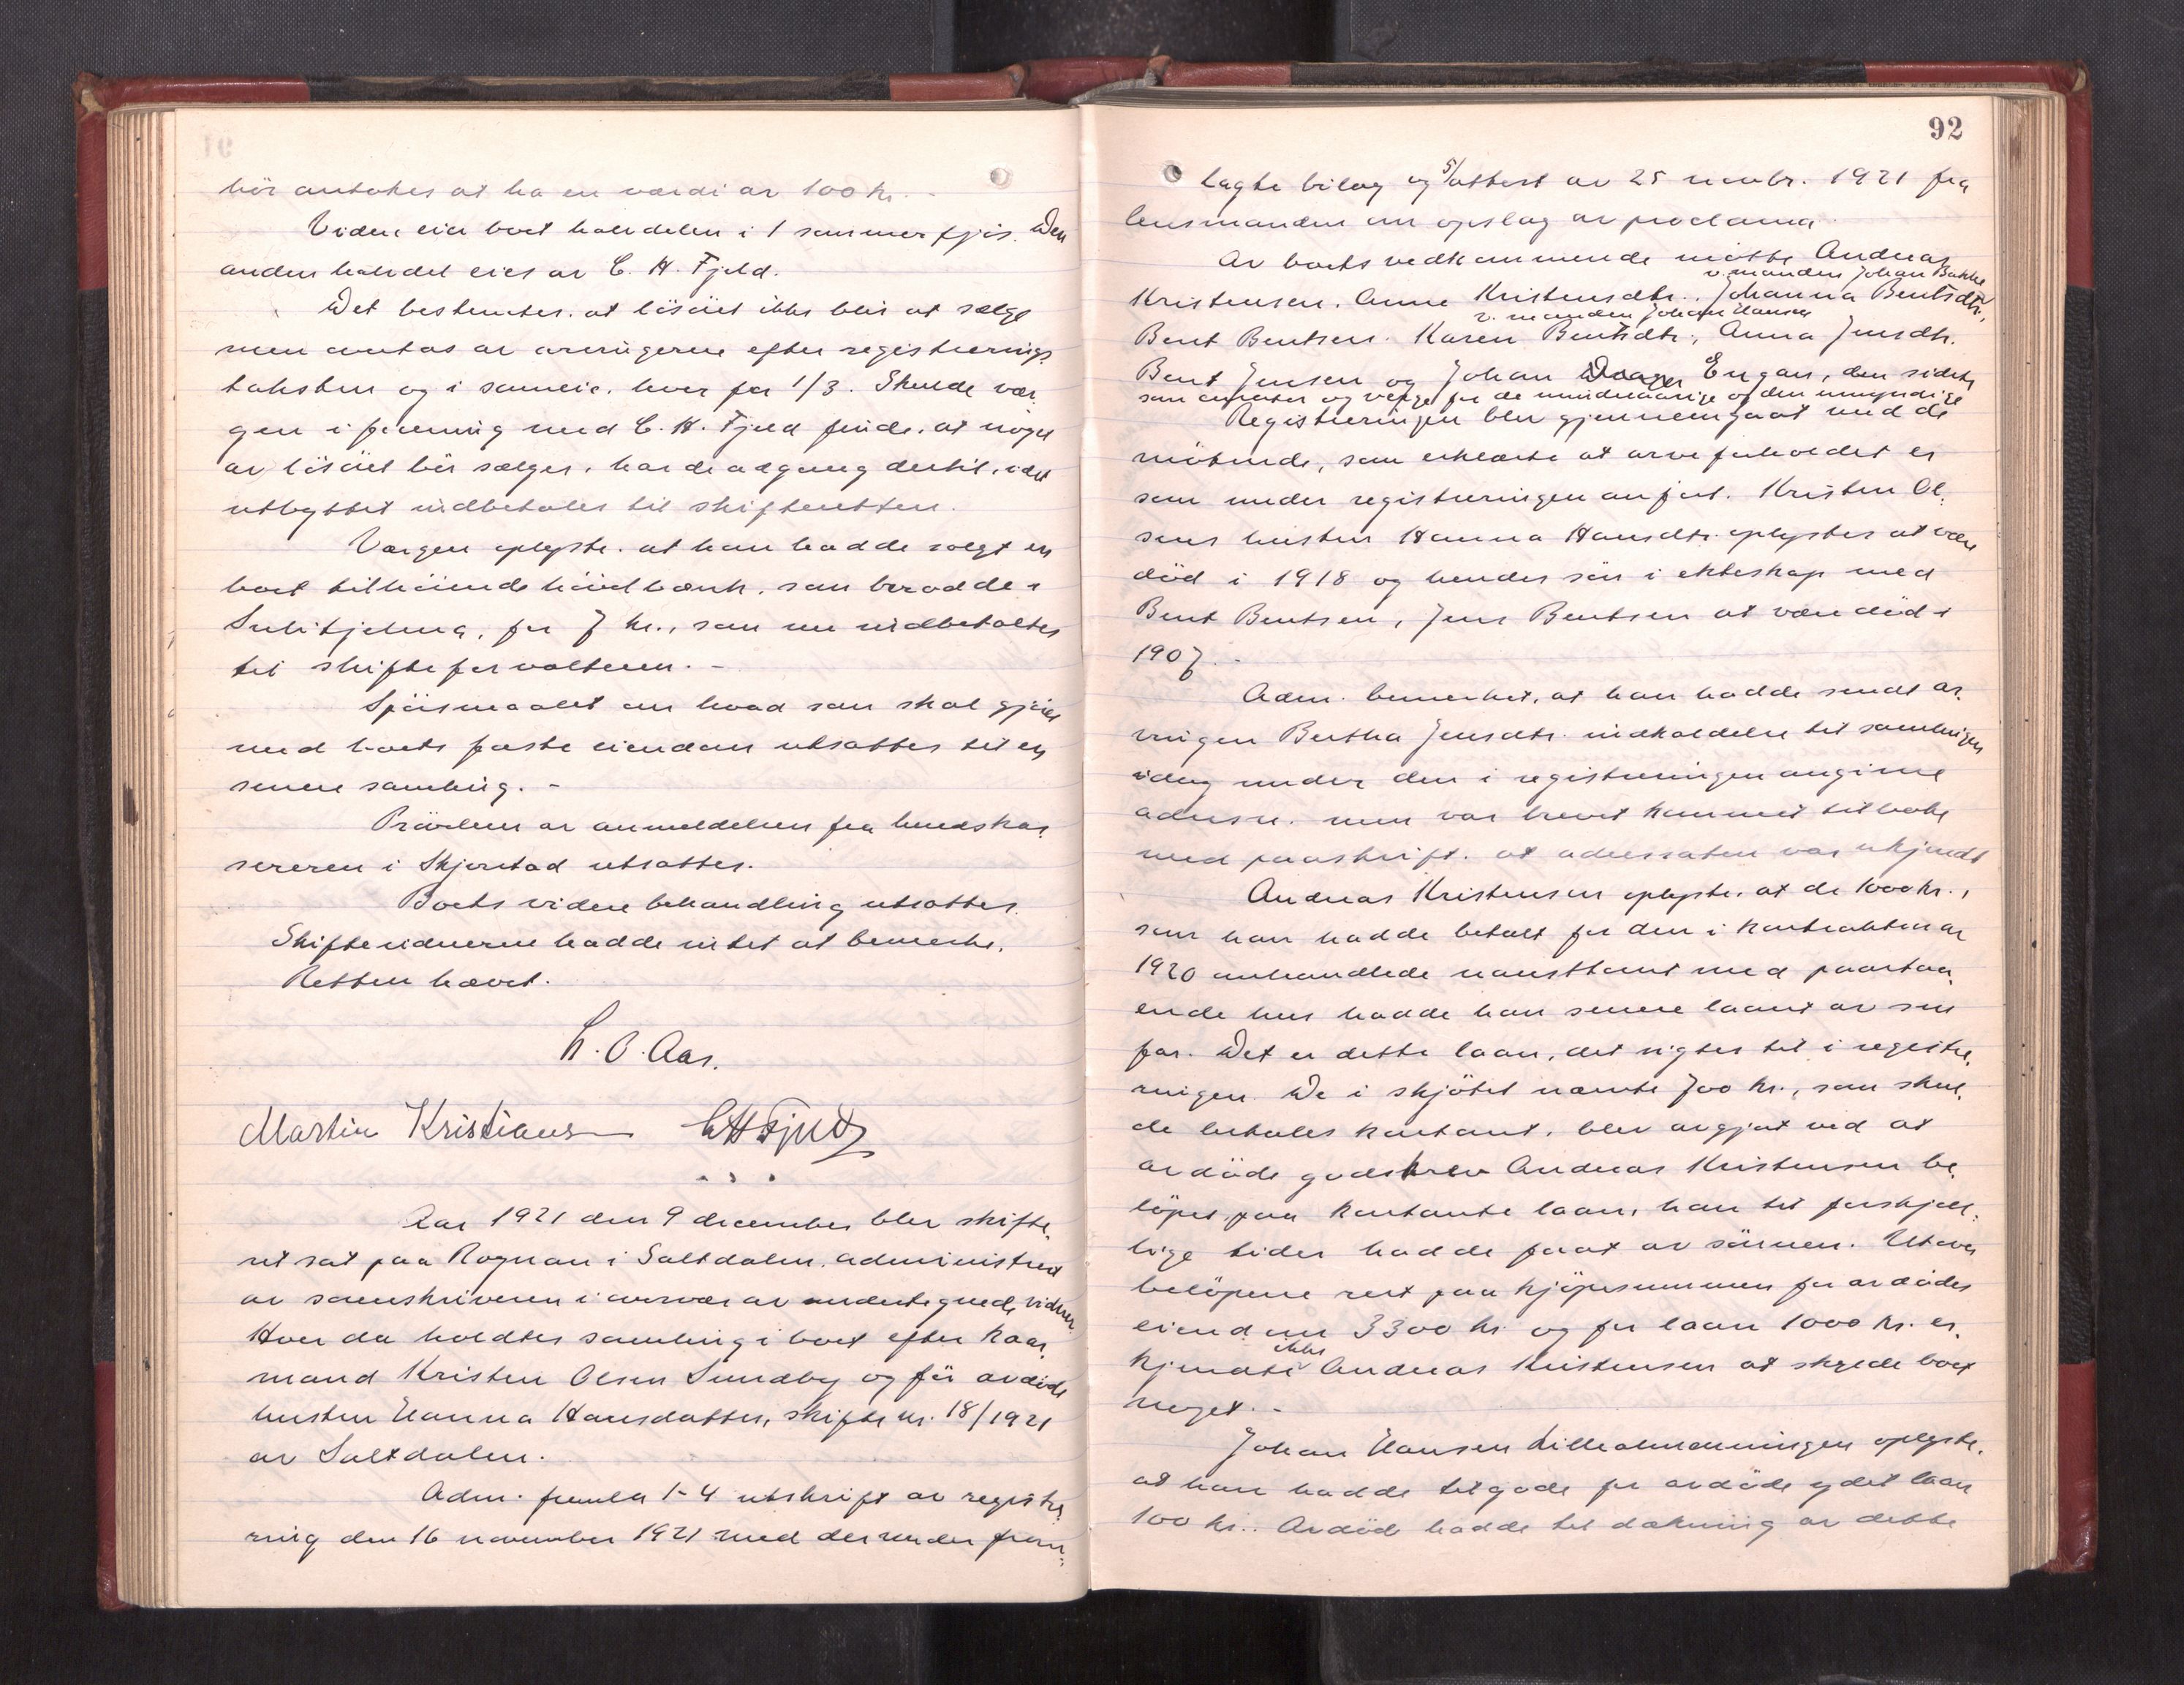 bör antakes at ha en værdi av 100 kr. -
Videre eier boet halvdelen i 1 sommerfjøs. Den
anden halvdel eies av C. H. Fjeld.
Det bestemtes, at lösöret ikke blir at sælge
men antas av arvingerne efter registrerings
taksten og i sameie, hver for 1/3. Skulde vær-
gen i forening med C. H. Fjeld finde, at noget
av lösöret bör sælges, har de adgang dertil, idet
utbyttet indbetales til skifteretten.
Værgen oplyste, at han hadde solgt en
boet tilhörende hövelbænk, som berodde i
Sulitjelma, for 7 kr., som nu indbetaltes
til skifteforvalteren. -
Spörsmaalet om hvad som skal gjöres
med boets faste eiendom utsattes til en
senere samling. -
Prövelsen av anmeldelsen fra lensmanskas
sereren i Skjerstad utsattes.
Boets videre behandling utsattes.
Skiftevidnerne hadde intet at bemerke.
Retten hævet.
L. O. Aas.
Martin Kristiansen C H Fjeld
Aar 1921 den 9 december blev skifte-
ret sat paa Rognan i Saltdalen, administrert
av sorenskriveren i overvær av undertegnede vidner.
Hvor da holdtes samling i boet efter kaar-
mand Kristen Olsen Sundby og för avdöde
hustru Hanna Hansdatter, skifte nr. 18/1921
av Saltdalen.
Adm. fremla 1-4 utskrift av registre-
ring den 16 november 1921 med derunder frem-
92
lagte bilag og 5/ attest av 25 novbr. 1921 fra
lensmanden om opslag av proclama.
Av boets vedkommende mötte Andreas
v. manden Johan Bakke
Kristensen, Anne Kristensdtr., Johanna Bentsdtr.,
v. manden Johan Hansen
Bent Bentsen, Karen Bentsdtr., Anna Jensdtr.
Bent Jensen og Johan Engan, den sidste
som kurator og verge for de mindreaarige og den umyndige
Registreringen blev gjennemgaat med de
mötende, som erklærte at arveforholdet er
som under registreringen anfört. Kristen Ol-
sens hustru Hanna Hansdtr. oplystes at være
död i 1918 og hendes sön i ekteskap med
Bent Bentsen, Jens Bentsen at være död i
1907. -
Adm. bemerket, at han hadde sendt ar-
vingen Bertha Jensdtr. indkaldelse til samlingen
idag under den i registreringen angivne
adresse, men var brevet kommet tilbake
med paaskrift, at adressaten var ukjendt
Andreas Kristensen oplyste, at de 1000 kr.,
som han hadde betalt for den i kontrakten av
1920 omhandlede nausttomt med paastaa-
ende hus hadde han senere laant av sin
far. Det er dette laan, det sigtes til i registre-
ringen. De i skjötet nævnte 700 kr., som skul-
de betales kontant, blev avgjort ved at
avdöde godskrev Andreas Kristensen be-
löpet paa kontante laan, han til forskjel-
lige tider hadde faat av sönnen. Utover
belöpene rest paa kjöpesummen for avdödes
eiendom 3300 kr. og for laan 1000 kr. er-
ikke
kjendte Andreas Kristensen at skylde boet
noget. -
Johan Hansen Lillealmenningen oplyste,
at han hadde tilgode for avdöde ydet laan
100 kr.. Avdöde hadde til dækning av dette